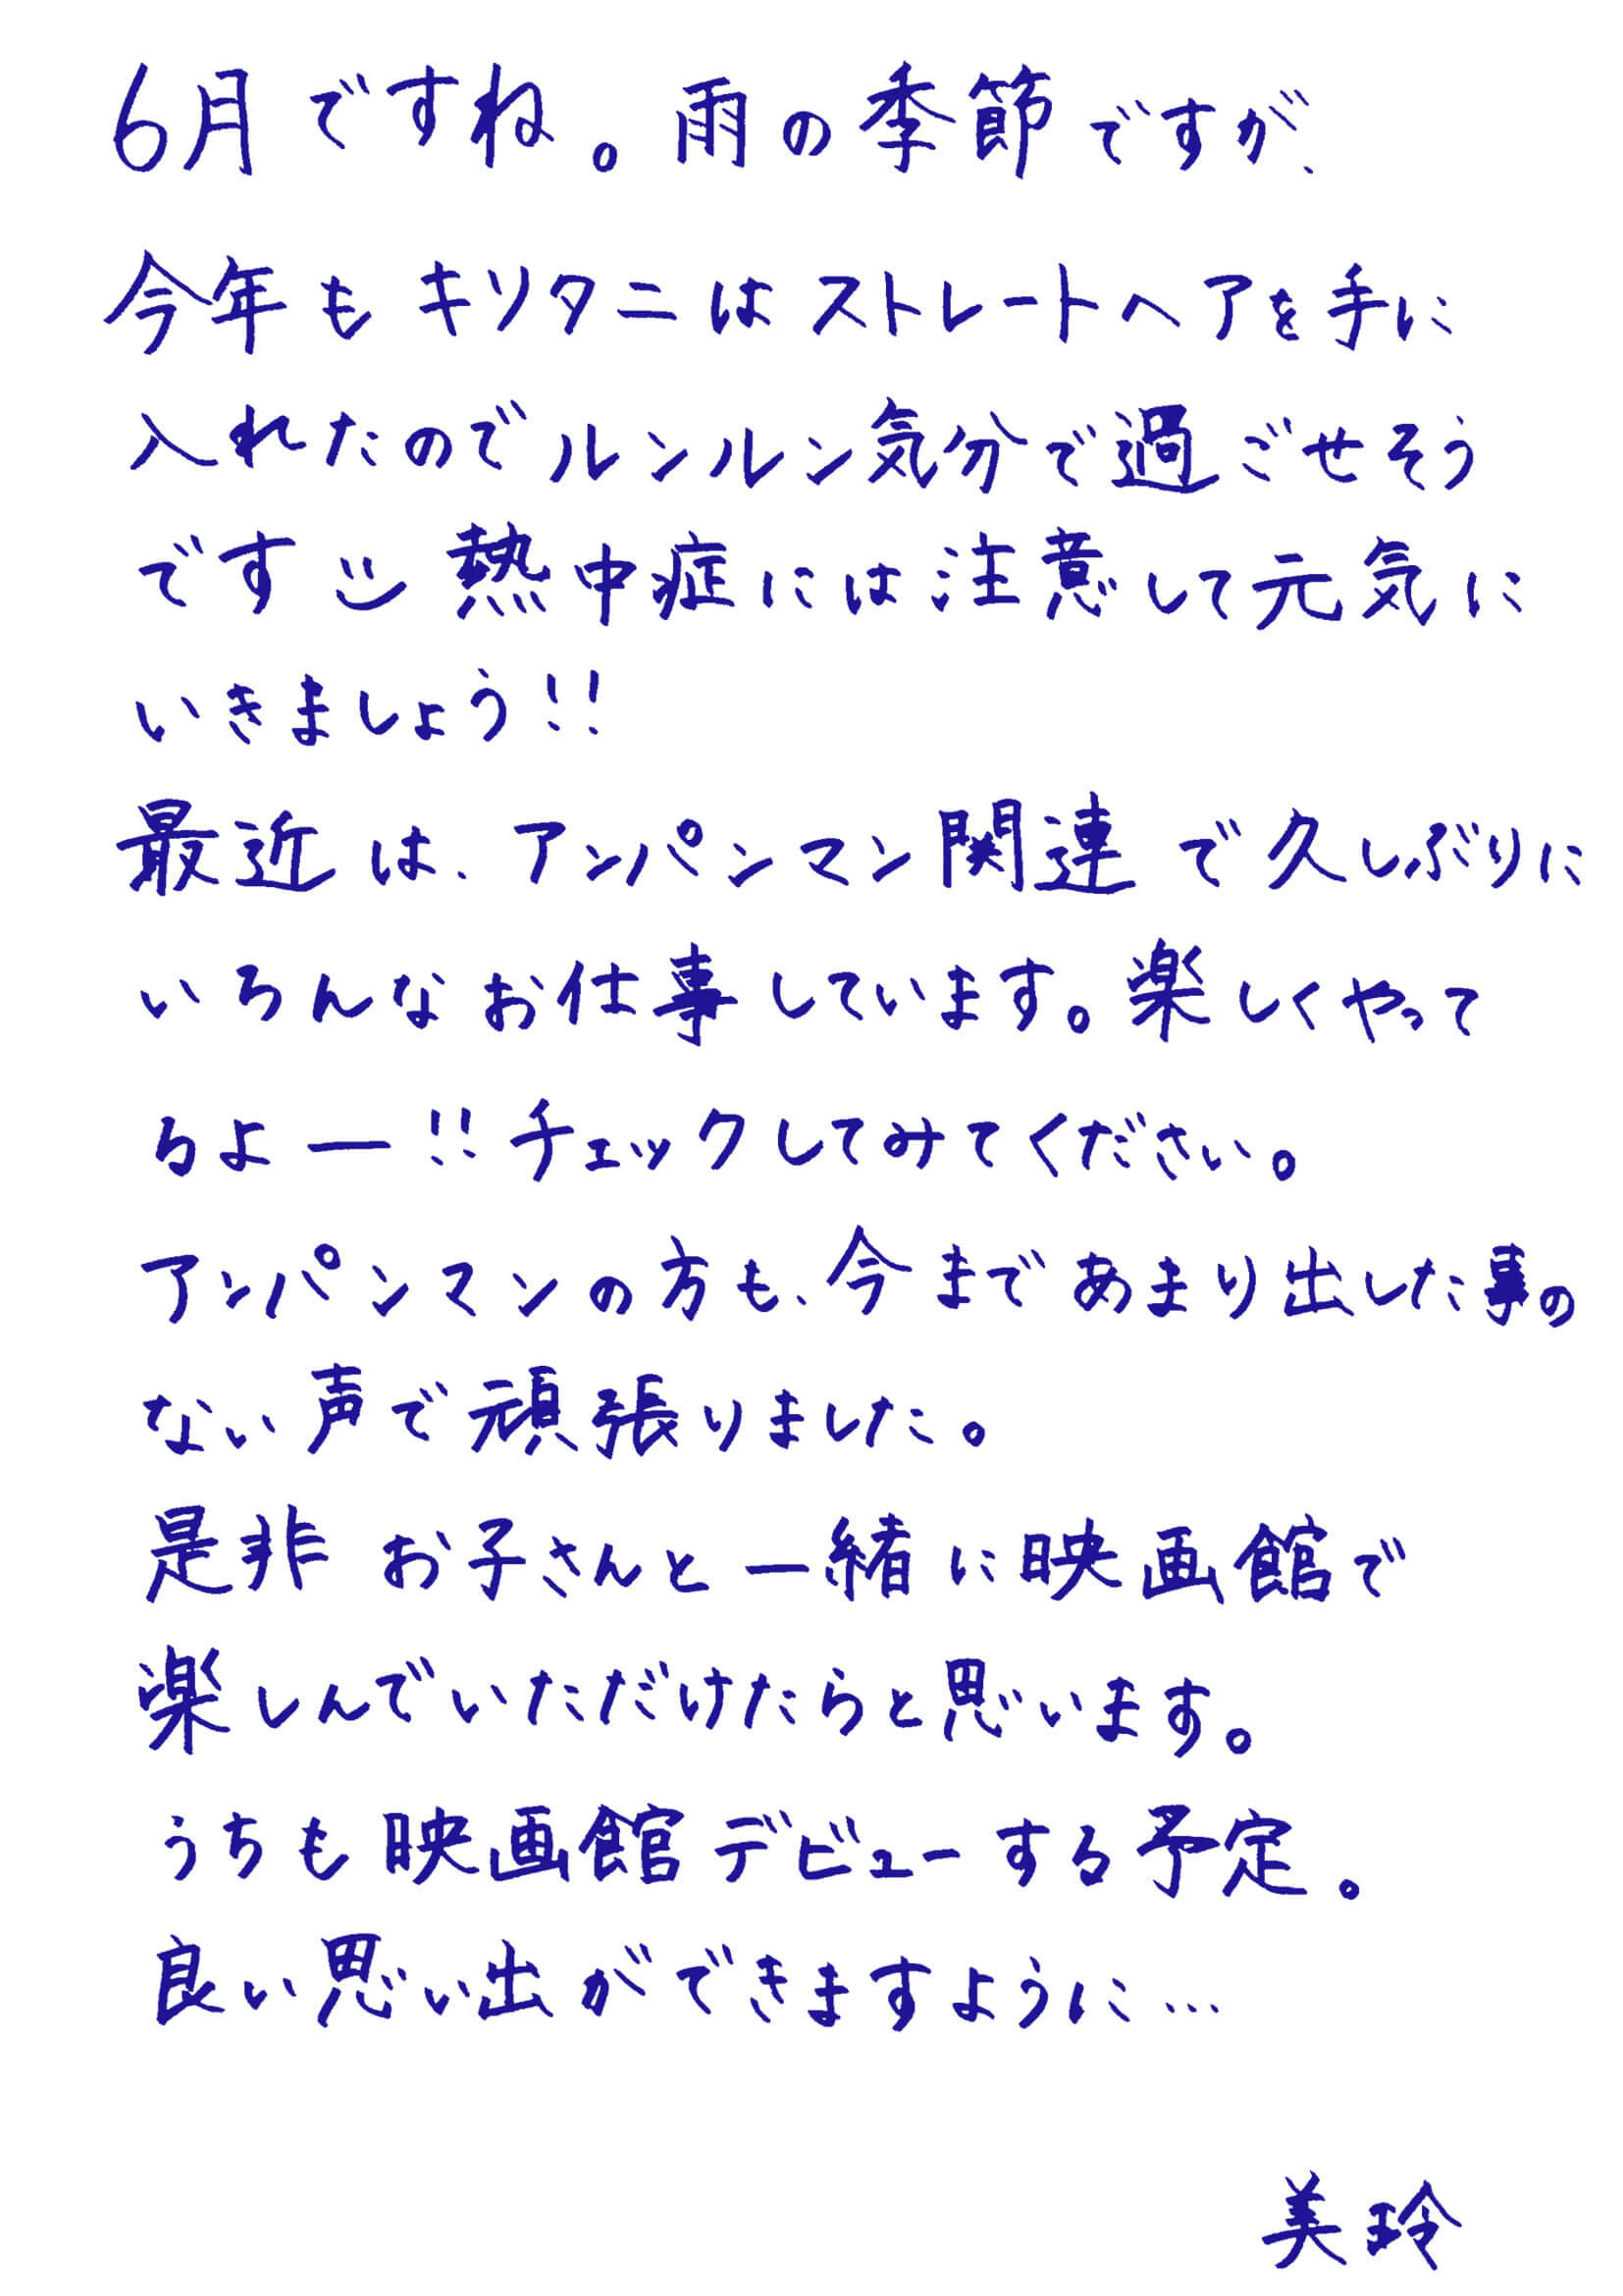 6月ですね。雨の季節ですが、
今年もキリタニはストレートヘアを手に
入れたのでルンルン気分で過ごせそう
です 熱中症には注意して元気に
いきましょう!!
最近は、アンパンマン関連で久しぶりに
いろんなお仕事しています。楽しくやって
るよー!!チェックしてみてください。
アンパンマンの方も、今まであまり出した事の
ない声で頑張りました。
是非お子さんと一緒に映画館で
楽しんでいただけたらと思います。
うちも映画館デビューする予定。
良い思い出ができますように…
美玲